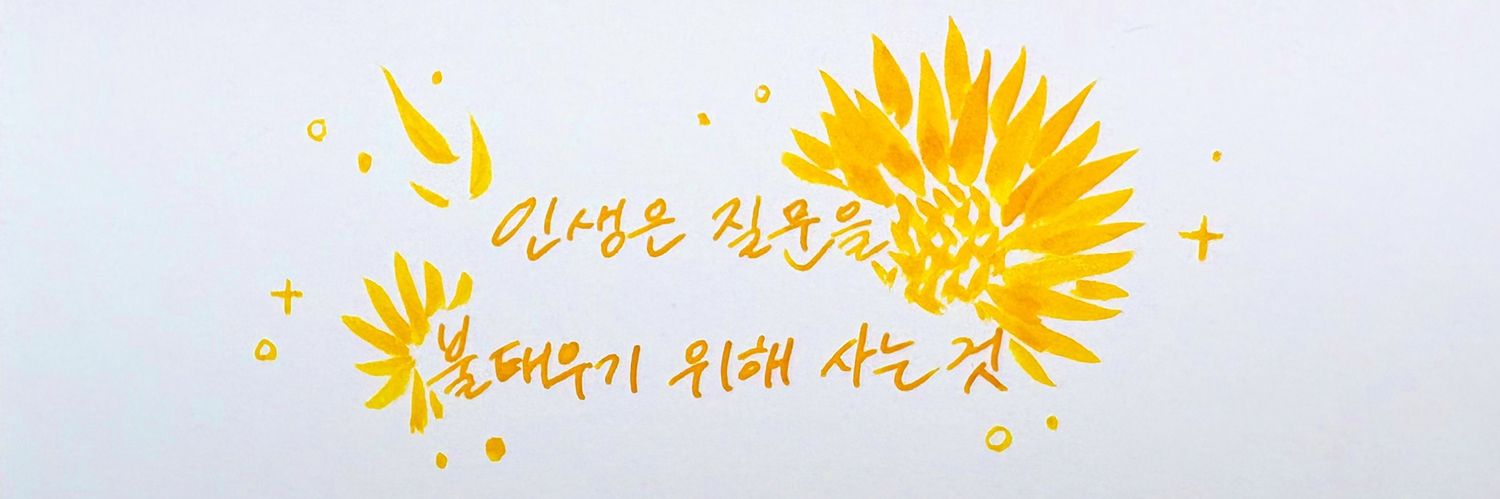 인생은 질문을
불태우기 위해 사는 것